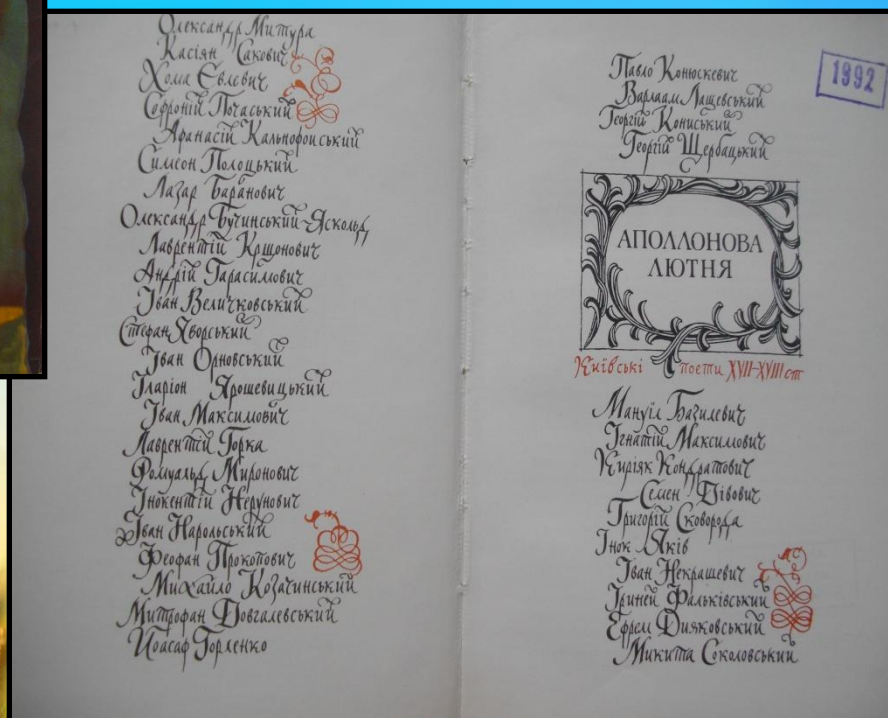 Олександр Митура
Касіян Сакович
Хома Євлевич
Софроній Почаський
Афанасій Кальнофойський
Симеон Полоцький
Лазар Баранович
Олександр Бучинський-Яскольд
Лаврентій Крщонович
Андрій Тарасимович
Іван Величковський
Стефан Яворський
Іван Орновський
Іларіон Ярошевицький
Іван Максимович
Лаврентій Горка
Ромуальд Миронович
Інокентій Нерунович
Іван Нарольський
Феофан Прокопович
Михайло Козачинський
Митрофан Довгалевський
Йоасаф Горленко
Павло Конюскевич
Варлаам Лащевський
Георгій Кониський
Георгій Щербацький
1992
АПОЛЛОНОВА
ЛЮТНЯ
Київські поети XVII-XVIII ст
Мануїл Базилевич
Ігнатій Максимович
Киріяк Кондратович
Семен Дівович
Григорій Сковорода
Інок Яків
Іван Некрашевич
Іриней Фальківський
Єфрем Дияковський
Микита Соколовський